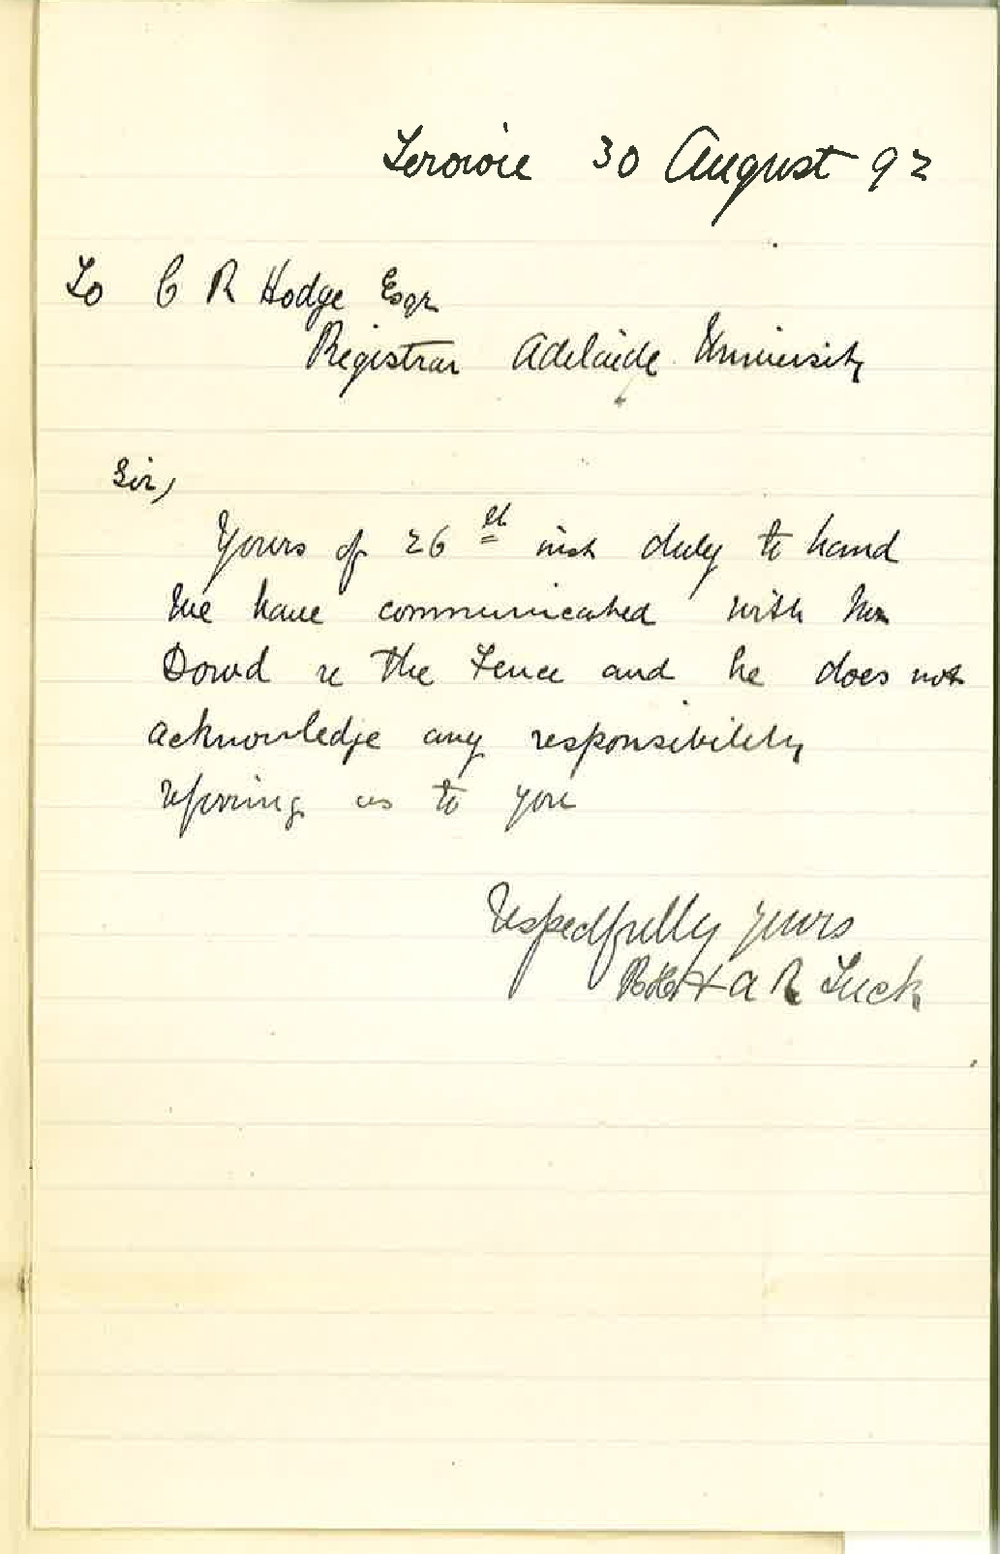 Terowie 30 August 92
To C R Hodge Esqr
Registrar Adelaide University
Sir,
Yours of 26th inst duly to hand
We have communicated with Mr
Dowd re the Fence and he does not
acknowledge any responsibility
referring us to you
Respectfully yours
& A R Tuck